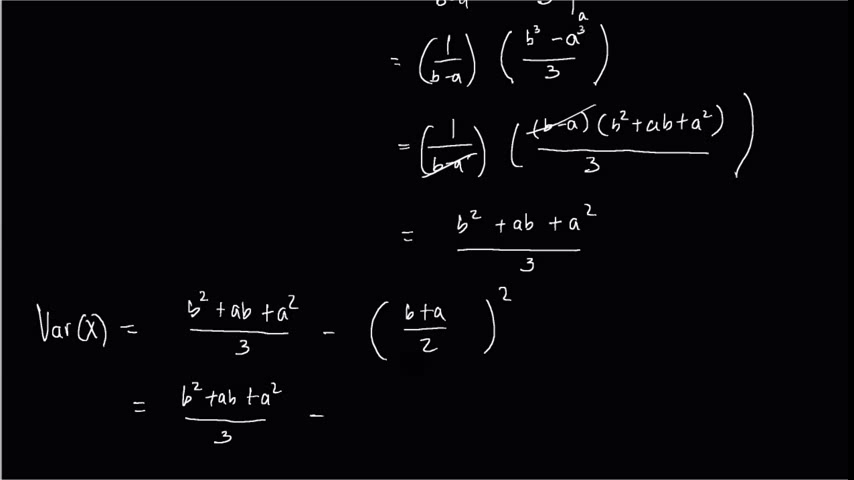 b-a 3 |a
= (1/(b-a)) ((b³ - a³)/3)
= (1/(b-a)) ((b-a)(b² + ab + a²)/3)
= (b² + ab + a²)/3
Var(X) = (b² + ab + a²)/3 - ((b+a)/2)²
= (b² + ab + a²)/3 -